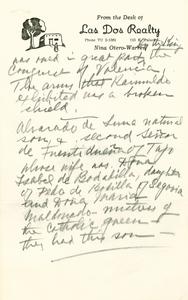 From the Desk of
Las Dos Realty
Nina Otero-Warren
was used - great
Conquest of Valencia
The arms that
exhibited was a broken
shield.
Alvarado de Luna natural
son, & second Señor
de Fuentidueña of Tajo
whose wife was Dona
Isabel de Bobadilla, daughter
of Pedro de Bobadilla of Segovia
and Dona Maria
Maldonado - mistress of
the Catholic queen &
they had this son -